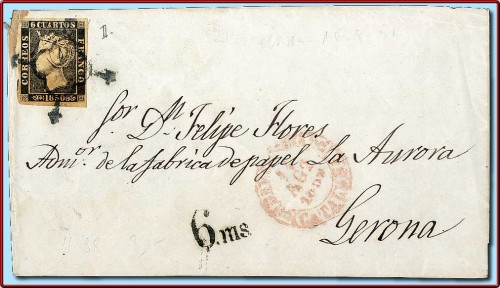 6 CUARTOS
CORREOS
FRANCO
1850
Sor. Dn. Felipe Flores
Admor. de la fabrica de papel La Aurora
Gerona
6. ms